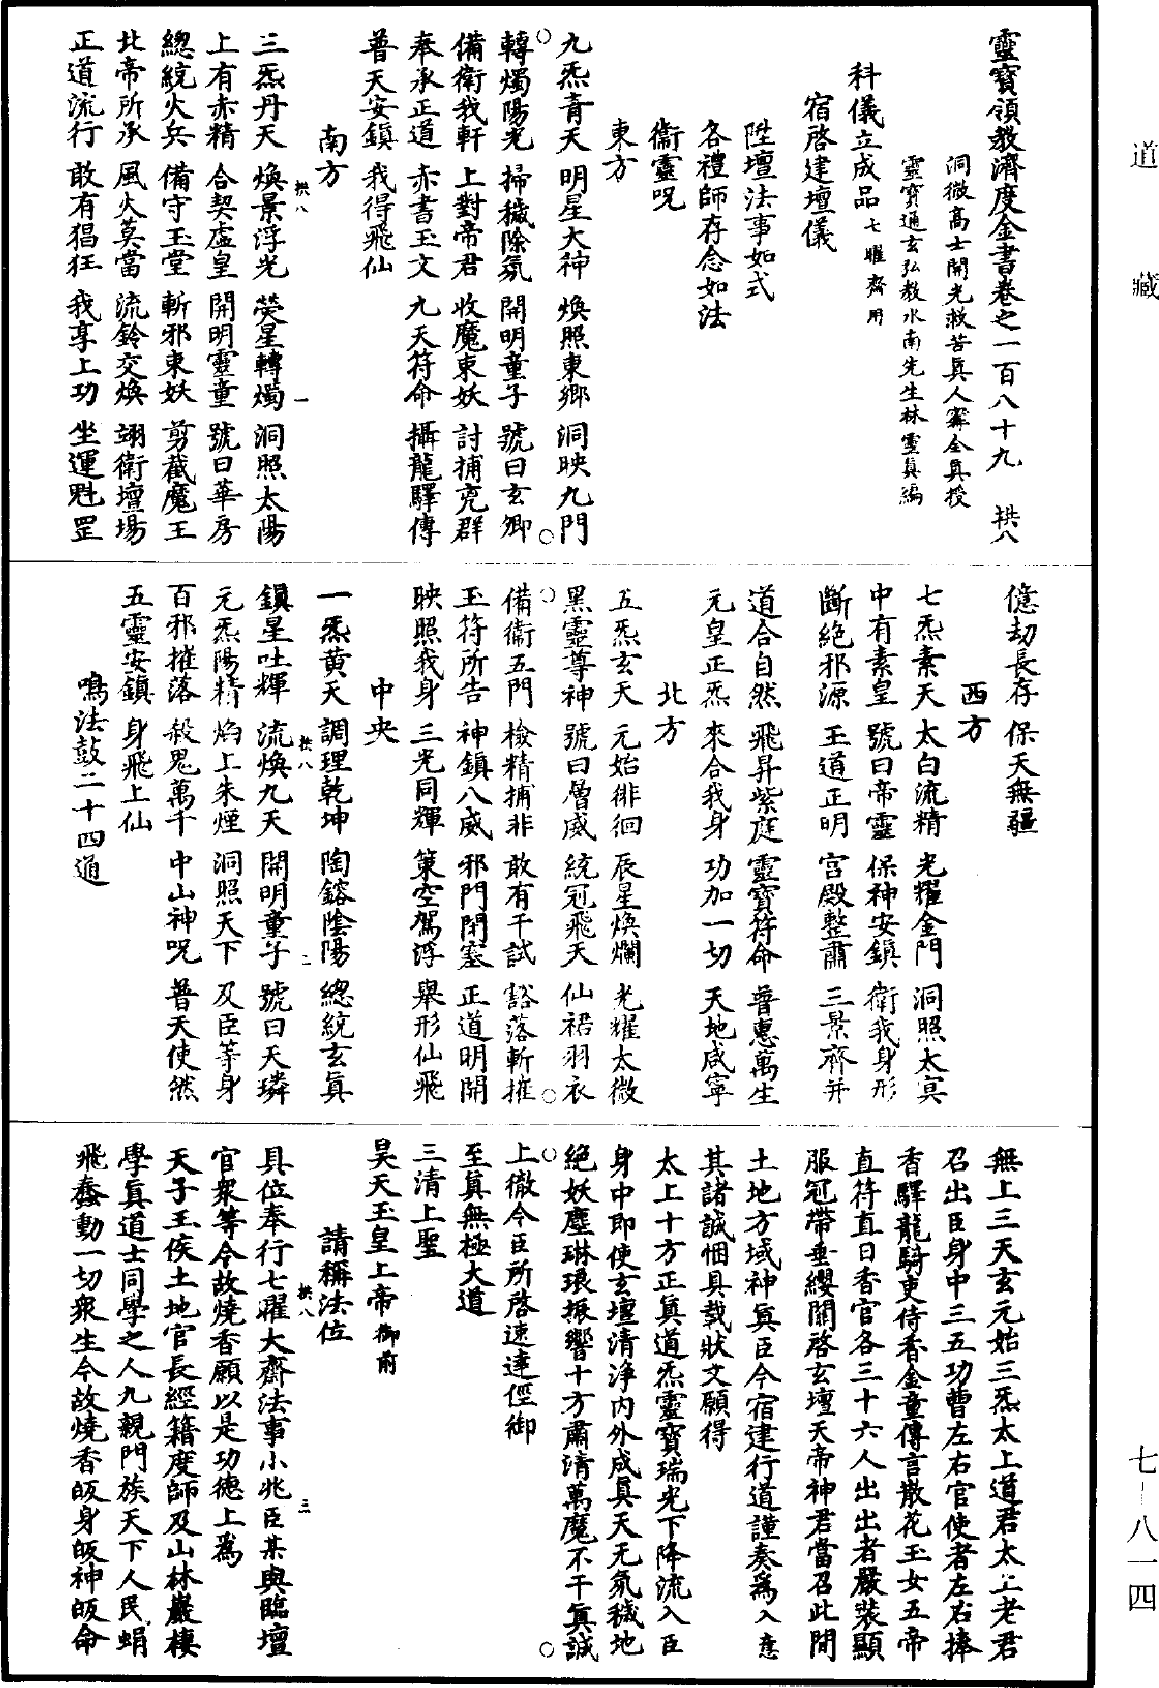 道藏
七—八一四
靈寶領教濟度金書卷之一百八十九 拱八
洞微高士開光救苦眞人甯全眞授
靈寶通玄弘教水南先生林靈眞編
科儀立成品 七曜齋用
宿啓建壇儀
陞壇法事如式
各禮師存念如法
衞靈呪
東方
九炁青天 明星大神 煥照東鄉 洞映九門
轉燭陽光 掃穢除氛 開明童子 號曰玄卿
備衛我軒 上對帝君 收魔束妖 討捕兇群
奉承正道 赤書玉文 九天符命 攝龍驛傳
普天安鎮 我得飛仙
南方
三炁丹天 煥景浮光 熒星轉燭 洞照太陽
上有赤精 合契虛皇 開明靈童 號曰華房
總統火兵 備守玉堂 斬邪束妖 剪截魔王
北帝所承 風火莫當 流鈴交煥 翊衛壇場
正道流行 敢有猖狂 我享上功 坐運魁罡
億劫長存 保天無疆
西方
七炁素天 太白流精 光耀金門 洞照太冥
中有素皇 號曰帝靈 保神安鎮 衛我身形
斷絕邪源 王道正明 宮殿整肅 三景齊并
道合自然 飛昇紫庭 靈寶符命 普惠萬生
元皇正炁 來合我身 功加一切 天地咸寧
北方
五炁玄天 元始徘徊 辰星煥爛 光耀太微
黑靈尊神 號曰層威 統冠飛天 仙裙羽衣
備衛五門 檢精捕非 敢有干試 豁落斬摧
玉符所告 神鎮八威 邪門閉塞 正道明開
映照我身 三光同輝 策空駕浮 舉形仙飛
中央
一炁黃天 調理乾坤 陶鎔陰陽 總統玄眞
鎮星吐輝 流煥九天 開明童子 號曰天璘
元炁陽精 焰上朱煙 洞照天下 及臣等身
百邪摧落 殺鬼萬千 中山神呪 普天使然
五靈安鎮 身飛上仙
鳴法鼓二十四通
無上三天玄元始三炁太上道君太上老君
召出臣身中三五功曹左右官使者左右捧
香驛龍騎吏侍香金童傳言散花玉女五帝
直符直日香官各三十六人出出者嚴裝顯
服冠帶垂纓關啓玄壇天帝神君當召此間
土地方域神眞臣今宿建行道謹奏爲入意
其諸誠悃具載狀文願得
太上十方正眞道炁靈寶瑞光下降流入臣
身中即使玄壇清淨內外成眞天无氛穢地
絕妖塵琳琅振響十方肅清萬魔不干眞誠
上徹今臣所啓速達徑御
至眞無極大道
三清上聖
昊天玉皇上帝御前
請稱法位
具位奉行七曜大齋法事小兆臣某與臨壇
官衆等今故燒香願以是功德上爲
天子王侯土地官長經籍度師及山林巖棲
學眞道士同學之人九親門族天下人民蜎
飛蠢動一切衆生今故燒香皈身皈神皈命
拱八 一
拱八 二
拱八 三